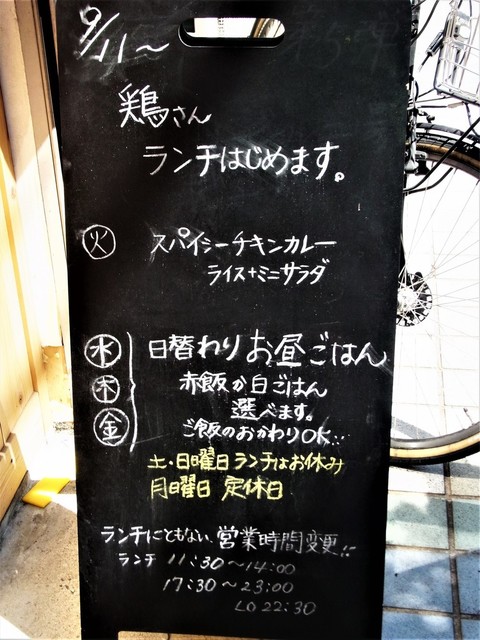 9/11〜
鶏さん
ランチはじめます。
火 スパイシーチキンカレー
ライス+ミニサラダ
水 日替わりお昼ごはん
木 赤飯か白ごはん
選べます。
金 ご飯のおかわりOK…
土・日曜日ランチはお休み
月曜日 定休日
ランチにともない営業時間変更に
ランチ 11:30〜14:00
17:30〜23:00
LO 22:30